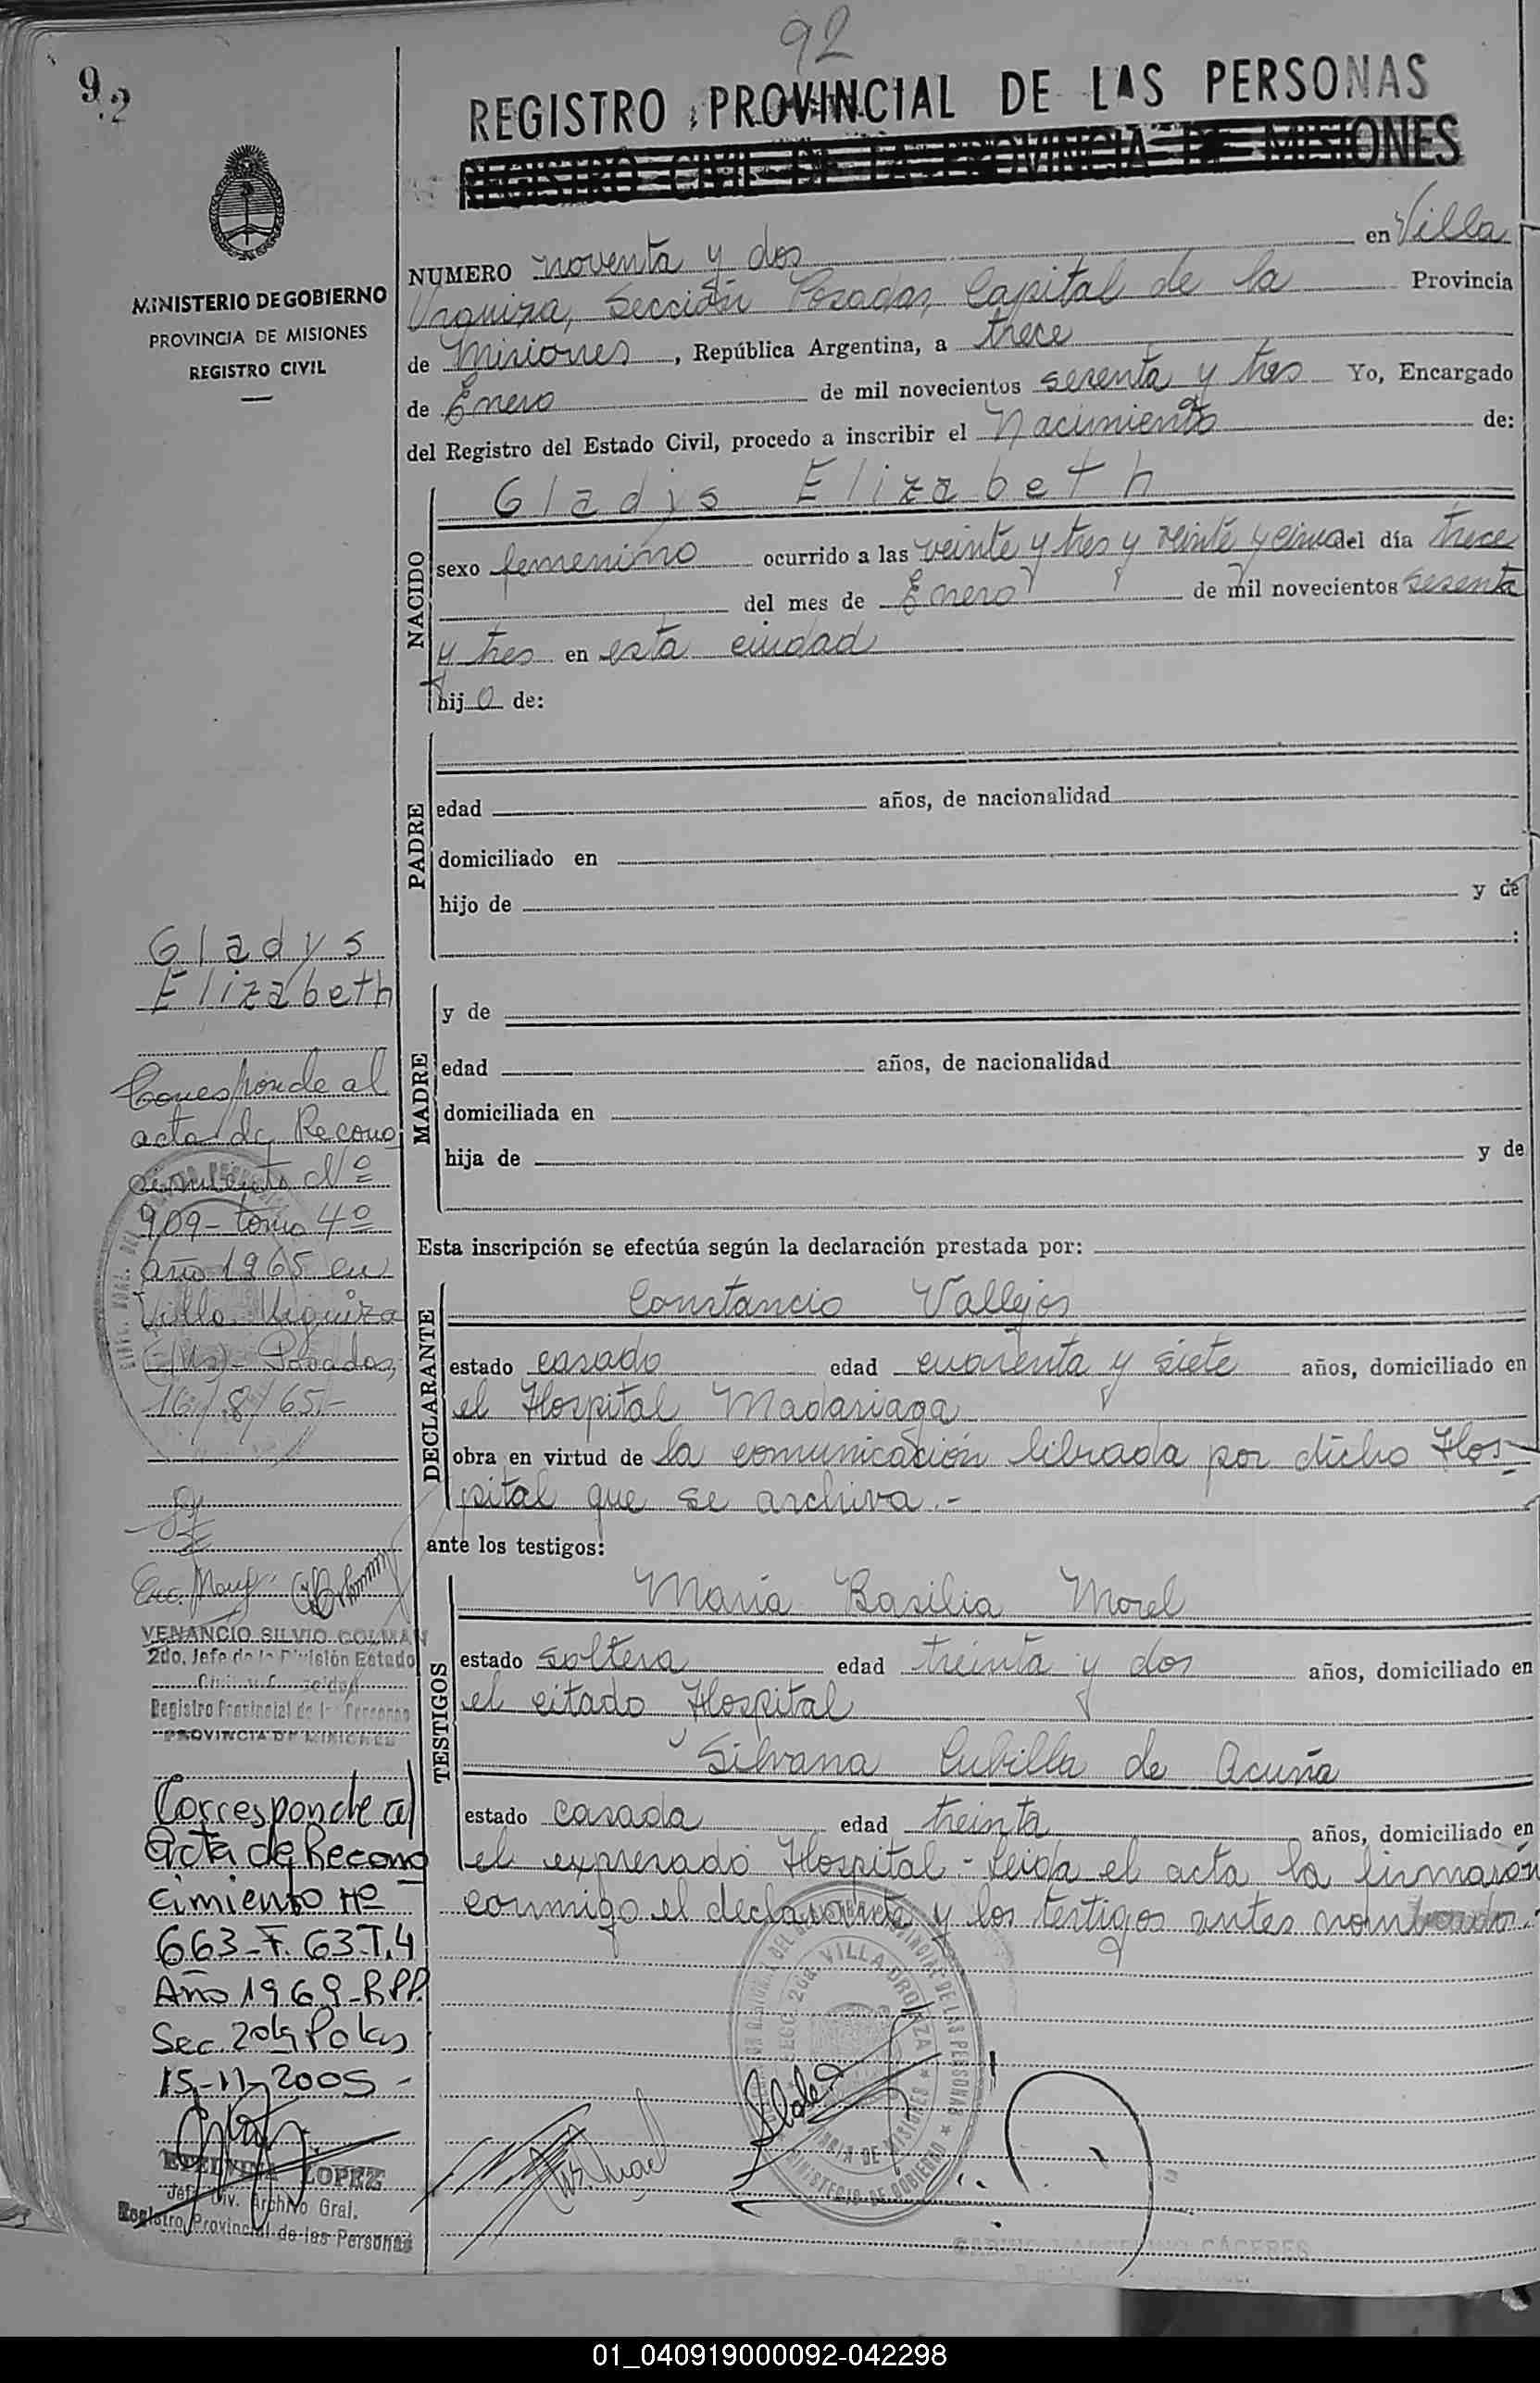 92
9.2
REGISTRO PROVINCIAL DE LAS PERSONAS
REGISTRO CIVIL DE LA PROVINCIA DE MISIONES
MINISTERIO DE GOBIERNO
PROVINCIA DE MISIONES
REGISTRO CIVIL
NUMERO noventa y dos en Villa
Urquiza, Sección Posadas, Capital de la Provincia
de Misiones, República Argentina, a trece
de Enero de mil novecientos sesenta y tres Yo, Encargado
del Registro del Estado Civil, procedo a inscribir el Nacimiento de:
NACIDO
Gladys Elizabeth
sexo femenino ocurrido a las veinte y tres y veinte y cinco del día trece
del mes de Enero de mil novecientos sesenta
y tres en esta ciudad
hija de:
PADRE
edad años, de nacionalidad
domiciliado en
hijo de y de
:
MADRE
y de
edad años, de nacionalidad
domiciliada en
hija de y de
Esta inscripción se efectúa según la declaración prestada por:
DECLARANTE
Constancio Vallejos
estado casado edad cuarenta y siete años, domiciliado en
el Hospital Madariaga
obra en virtud de la comunicación librada por dicho Hos-
pital que se archiva.-
ante los testigos:
TESTIGOS
María Basilia Morel
estado soltera edad treinta y dos años, domiciliado en
el citado Hospital
Silvana Cubilla de Acuña
estado casada edad treinta años, domiciliado en
el expresado Hospital.- Leida el acta la firmaron
conmigo el declarante y los testigos antes nombrados.-
Gladys
Elizabeth
Corresponde al
acta de Recono
cimiento Nº
909- tomo 4º
año 1965 en
Villa Urquiza
Posadas,
16/8/65.-
VENANCIO SILVIO COLMAN
2do. Jefe de la División Estado
Civil y
Registro Provincial de las Personas
PROVINCIA DE MISIONES
Corresponde al
Acta de Recono
cimiento Nº
663-F.63-T.4
Año 1969-RPP.
Sec. 2da Pdas
15-11-2005-
LOPEZ
Jefe Div. Archivo Gral.
Registro Provincial de las Personas
SECC. 2da. VILLA URQUIZA
MINISTERIO DE GOBIERNO
CÁCERES
01_040919000092-042298